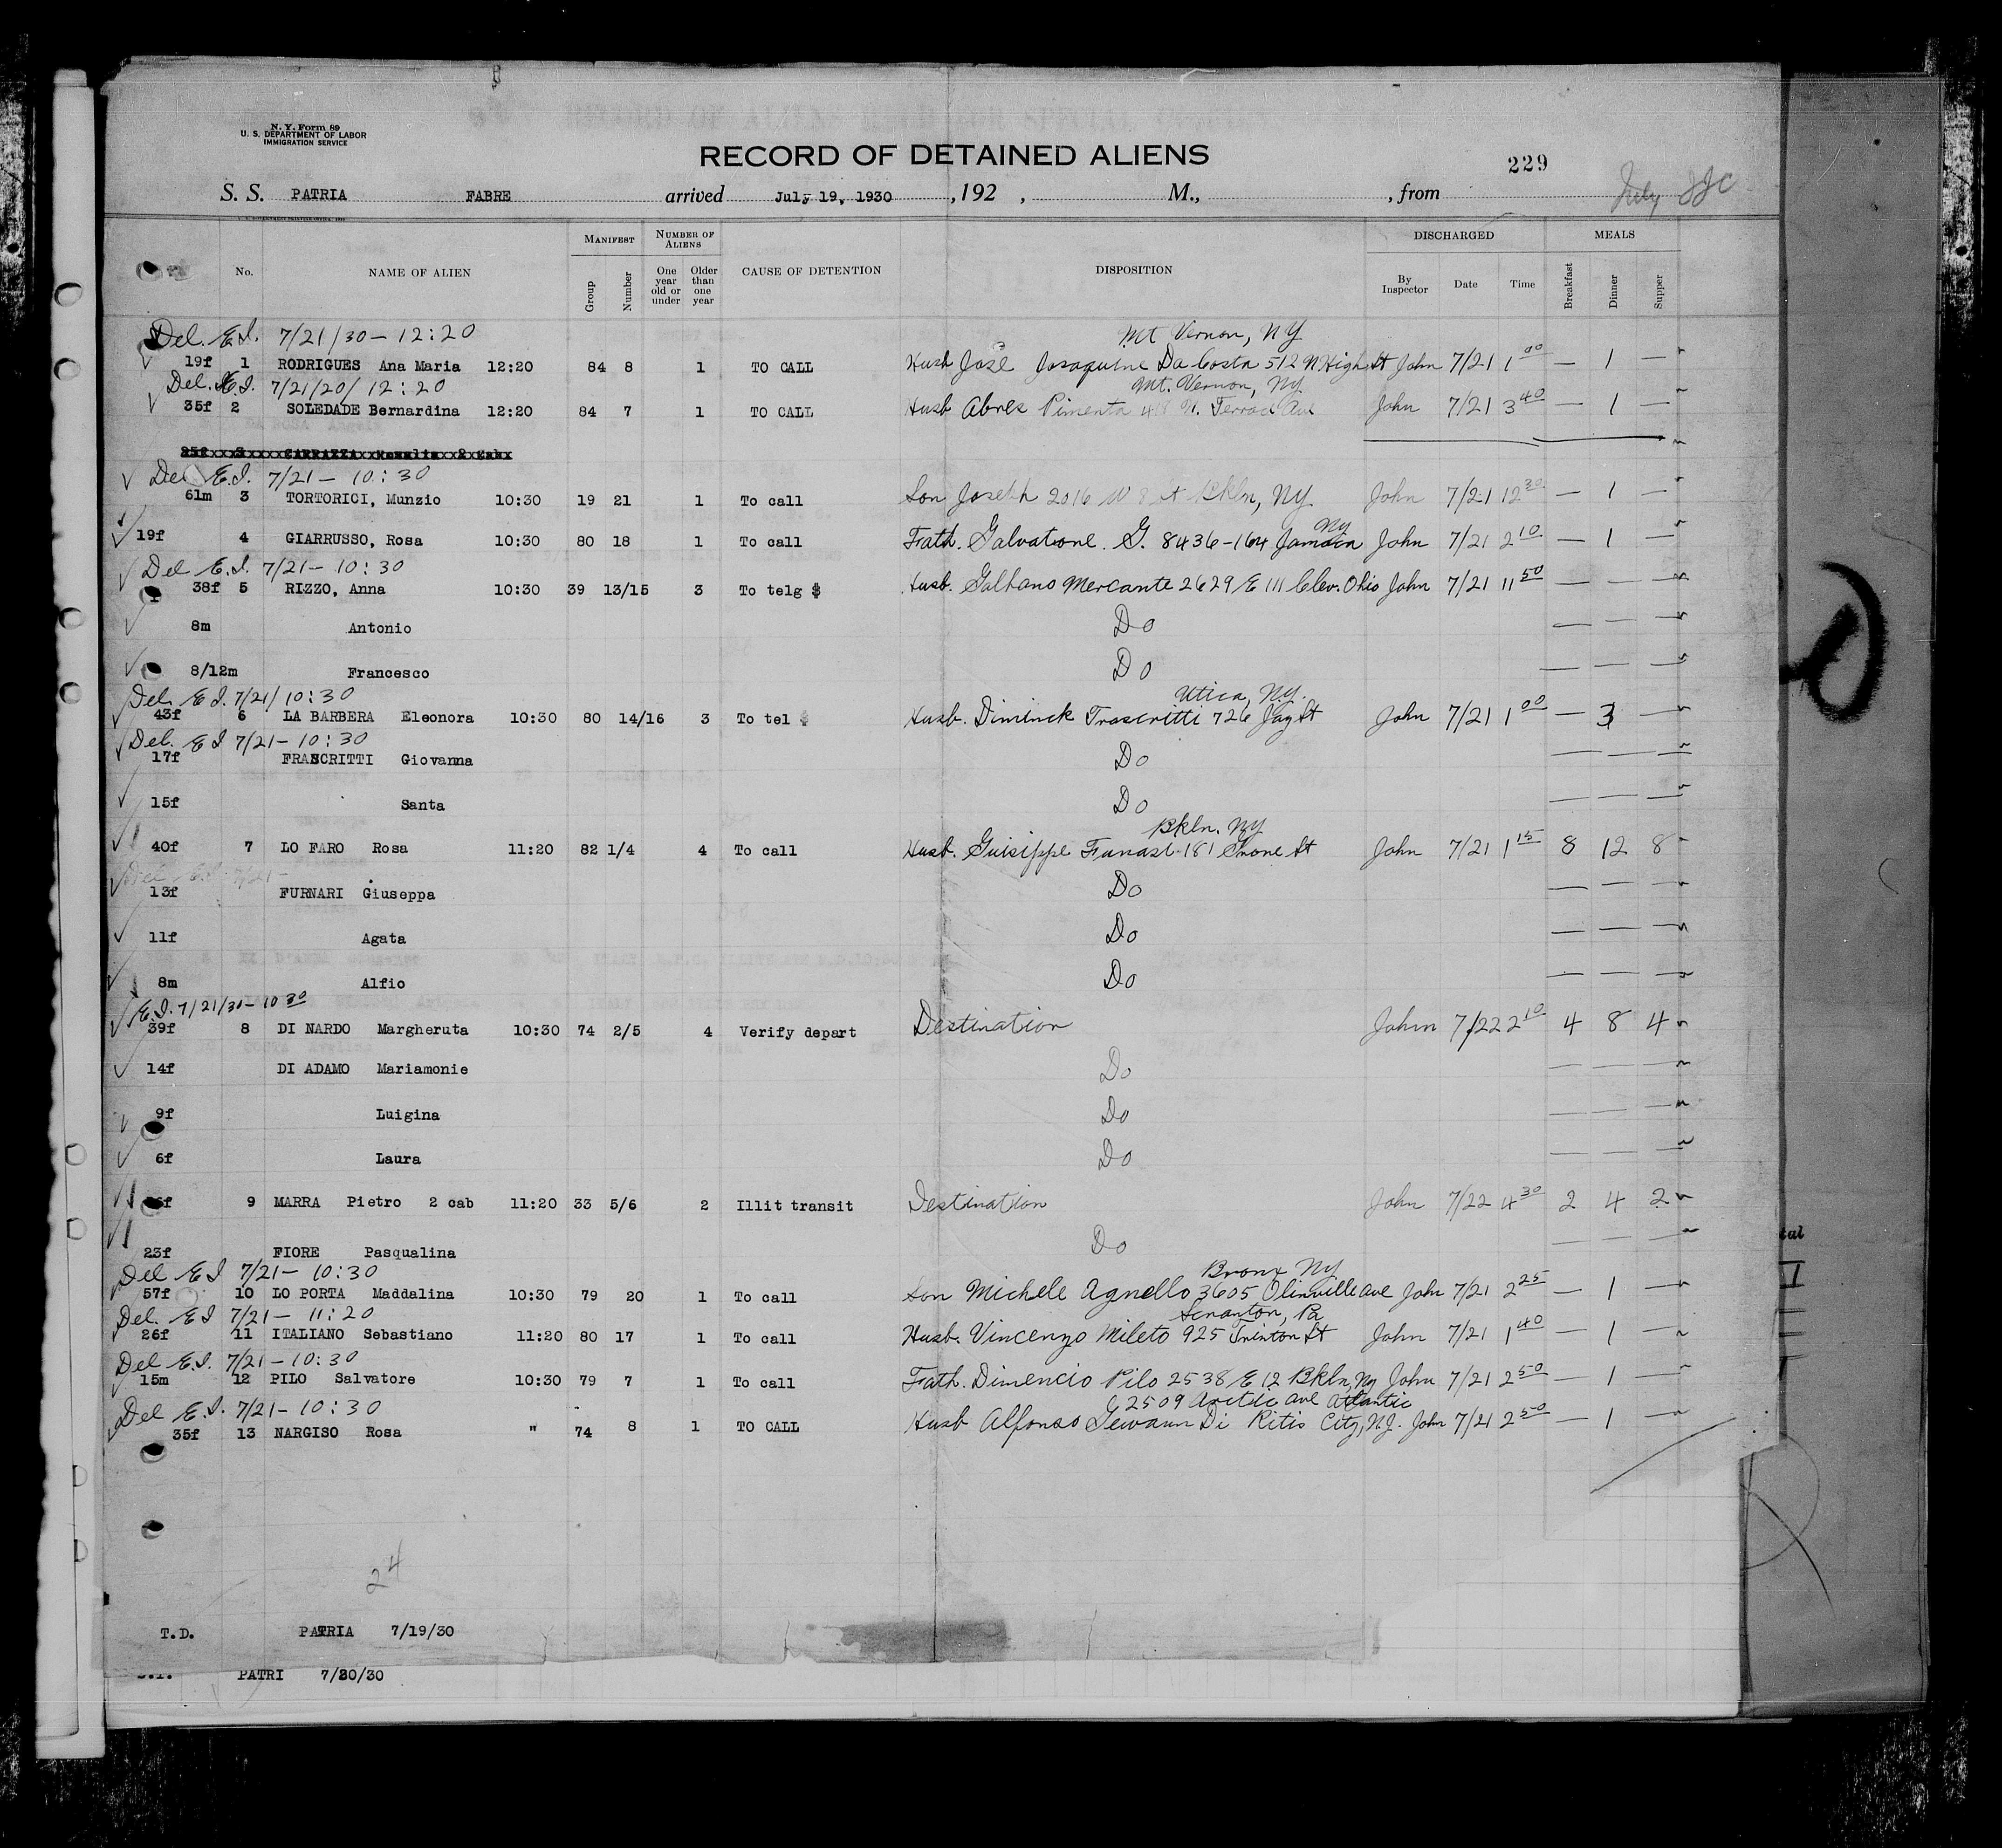 N. Y. Form 89
U. S. DEPARTMENT OF LABOR
IMMIGRATION SERVICE
RECORD OF DETAINED ALIENS
229
S. S. PATRIA FABRE arrived July 19, 1930, 192 , M., , from
July
MANIFEST NUMBER OF ALIENS DISCHARGED MEALS
No. NAME OF ALIEN Group Number One year old or under Older than one year CAUSE OF DETENTION DISPOSITION By Inspector Date Time Breakfast Dinner Supper
Del. E.I. 7/21/30 - 12:20 Mt Vernon, NY
19f 1 RODRIGUES Ana Maria 12:20 84 8 1 TO CALL Husb José Da Costa 512 N High St John 7/21 1 00 — 1 —
Del. E.I. 7/21/20/ 12:20 Mt. Vernon, NY
35f 2 SOLEDADE Bernardina 12:20 84 7 1 TO CALL Husb Abres Pimenta Ave John 7/21 3 40 — 1 —
Del E.I. 7/21 - 10:30
61m 3 TORTORICI, Munzio 10:30 19 21 1 To call Son Joseph 2016 W 8 St Bkln, NY John 7/21 12 30 — 1 —
NY
19f 4 GIARRUSSO, Rosa 10:30 80 18 1 To call Fath. Salvatione. G. 8436-164 Jamaica John 7/21 2 10 — 1 —
Del E.I. 7/21 - 10:30
38f 5 RIZZO, Anna 10:30 39 13/15 3 To telg $ Husb. Mercante 2629 E 111 Clev. Ohio John 7/21 11 50 — — —
8m Antonio Do — — —
8/12m Francesco Do — — —
Del. E I. 7/21/ 10:30 Utica, NY.
43f 6 LA BARBERA Eleonora 10:30 80 14/16 3 To tel $ Husb. Diminick Frascritti 726 Jay St John 7/21 1 00 — 3 —
Del. E I 7/21 - 10:30
17f FRASCRITTI Giovanna Do — — —
15f Santa Do — — —
Bkln. NY
40f 7 LO FARO Rosa 11:20 82 1/4 4 To call Husb. Guisippe 181 St John 7/21 1 15 8 12 8
Del E.I. 7/21 -
13f FURNARI Giuseppa Do — — —
11f Agata Do — — —
8m Alfio Do — — —
E.I. 7/21/30 - 10 30
39f 8 DI NARDO Margheruta 10:30 74 2/5 4 Verify depart Destination John 7/22 2 10 4 8 4
14f DI ADAMO Mariamonie Do — — —
9f Luigina Do — — —
6f Laura Do — — —
9 MARRA Pietro 2 cab 11:20 33 5/6 2 Illit transit Destination John 7/22 4 30 2 4 2
23f FIORE Pasqualina Do — — —
Del E I 7/21 - 10:30 Bronx NY
57f 10 LO PORTA Maddalina 10:30 79 20 1 To call Son Michele Agnello 3605 Olinville ave John 7/21 2 25 — 1 —
Del. E I 7/21 - 11:20 Scranton, Pa
26f 11 ITALIANO Sebastiano 11:20 80 17 1 To call Husb. Vincenzo Mileto 925 St John 7/21 1 40 — 1 —
Del E.I. 7/21 - 10:30
15m 12 PILO Salvatore 10:30 79 7 1 To call Fath. Dimencio Pilo 2538 E 12 Bkln, Ny John 7/21 2 50 — 1 —
Del E.I. 7/21 - 10:30 2509 Arctic ave Atlantic
35f 13 NARGISO Rosa " 74 8 1 TO CALL Husb Alfonso Di Ritis City, NJ. John 7/21 2 50 — 1 —
24
T.D. PATRIA 7/19/30
PATRI 7/20/30